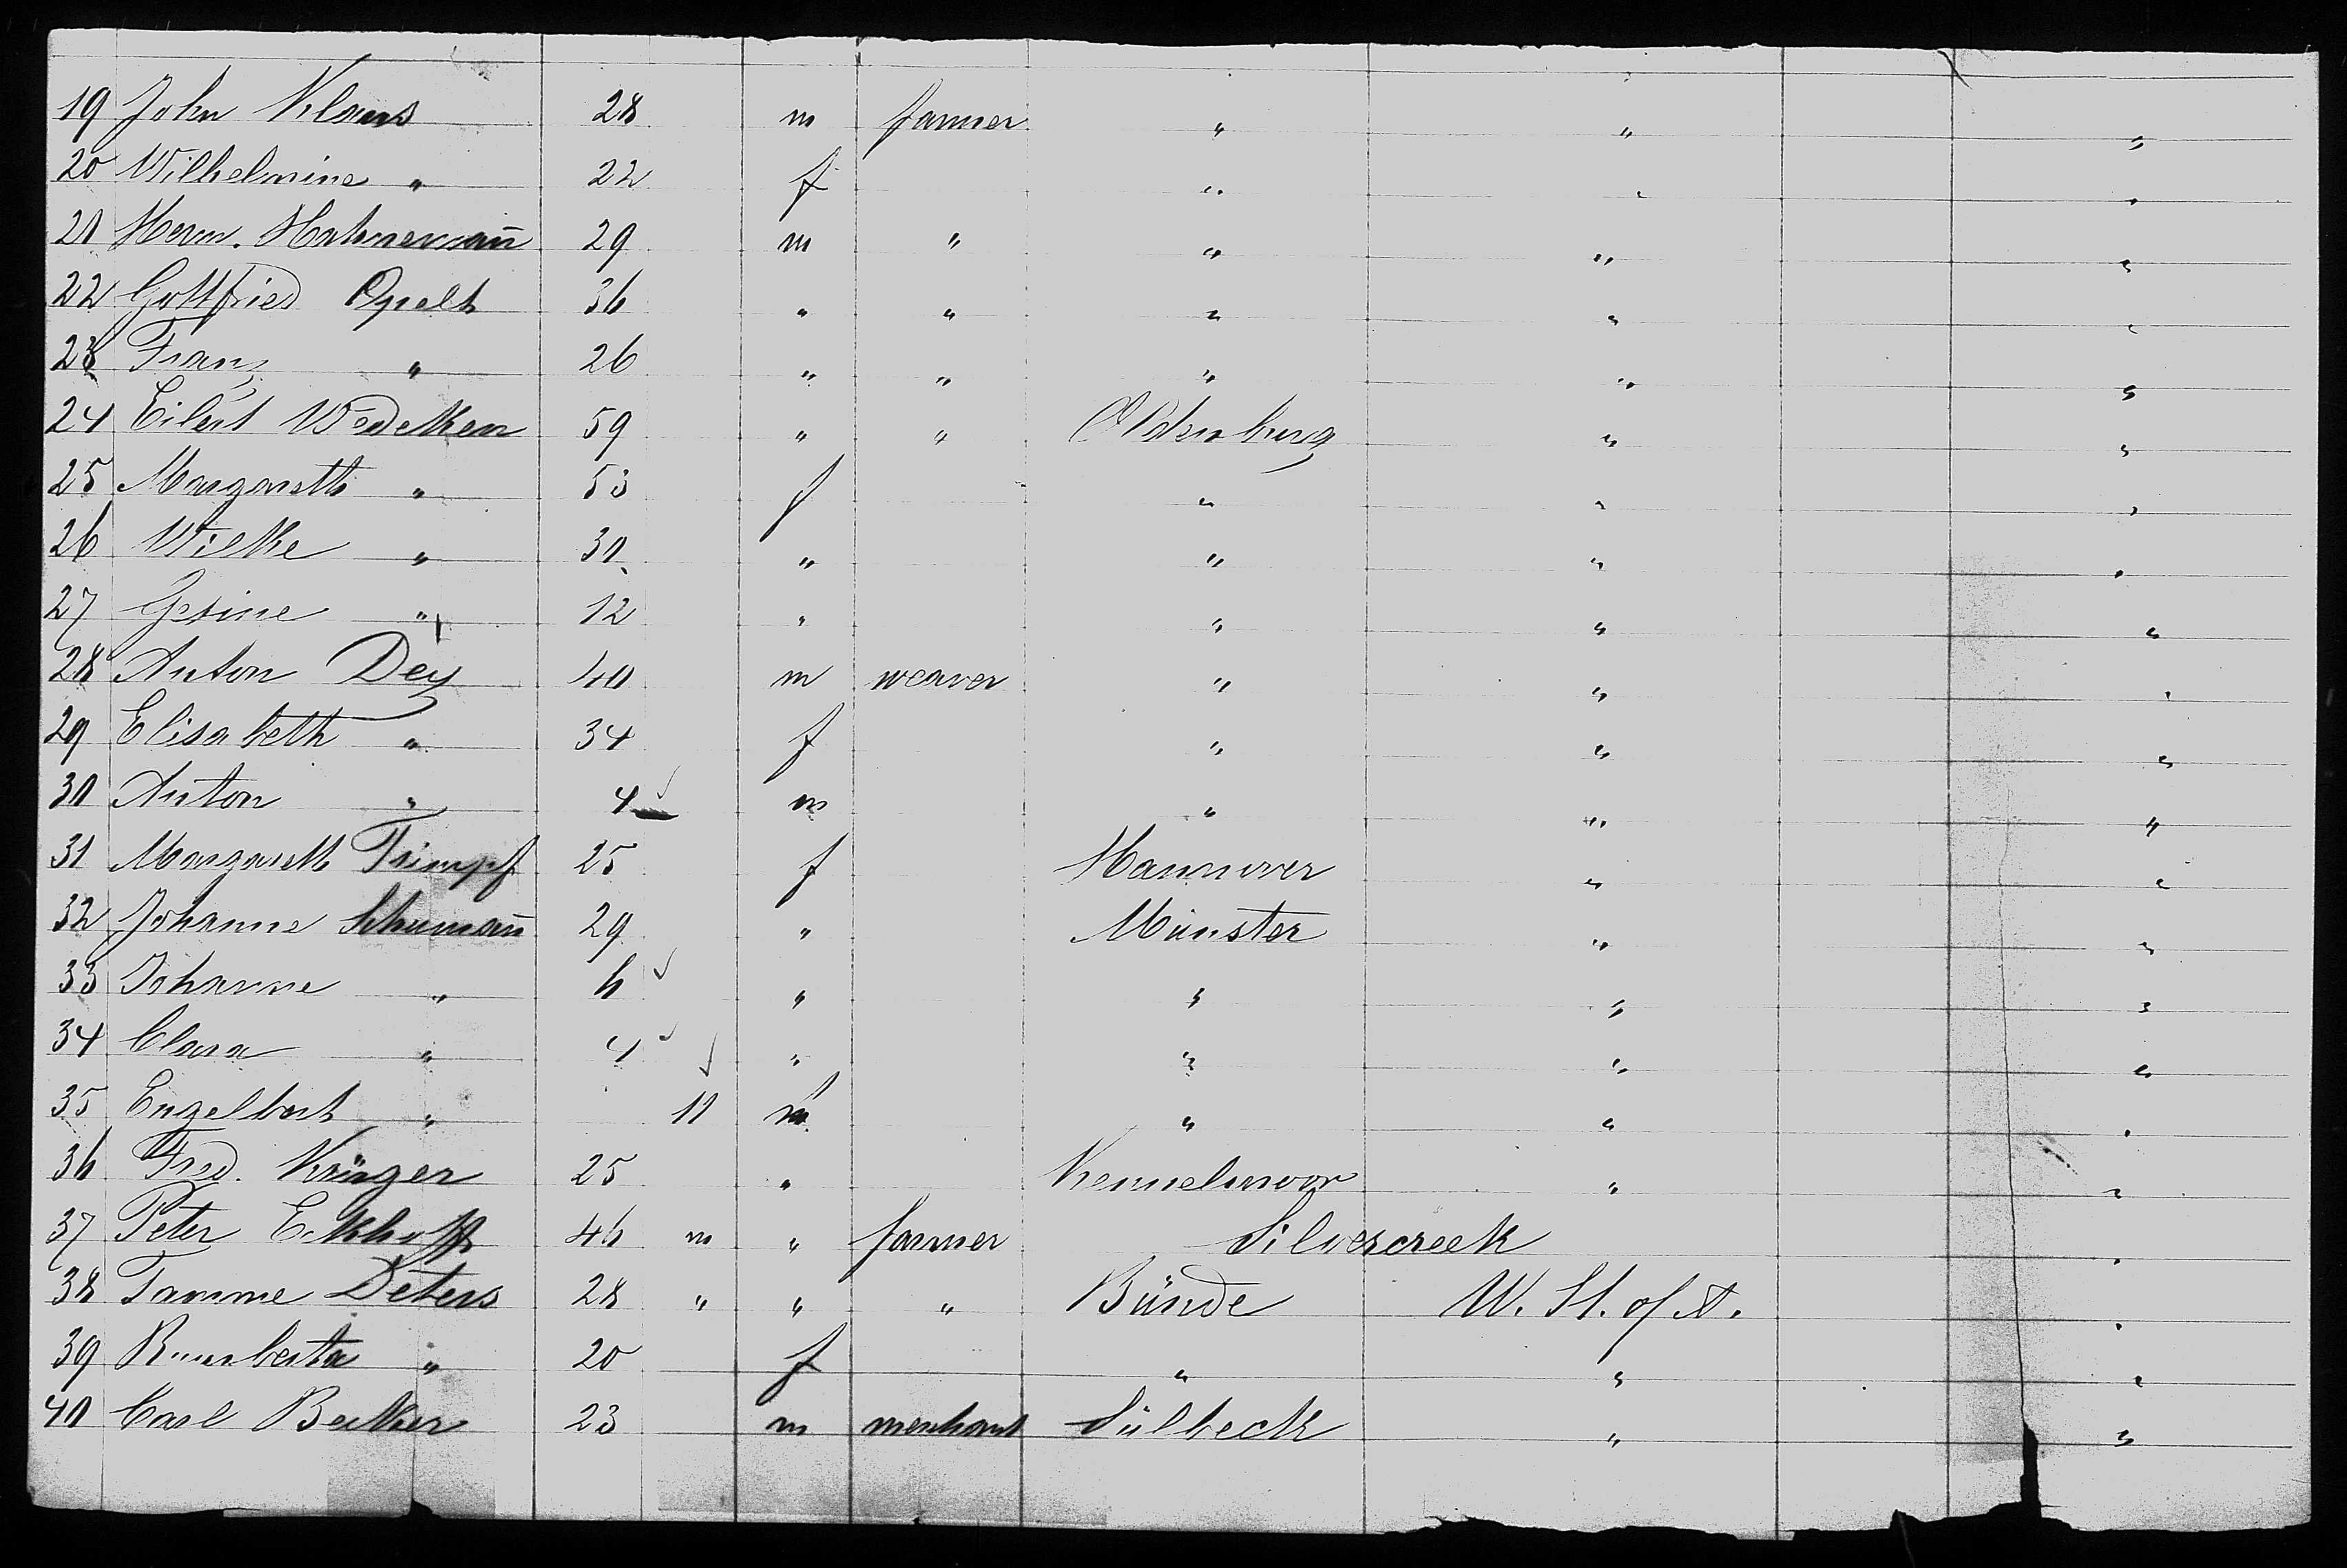 19 John Klaus 28 m farmer " " "
20 Wilhelmine " 22 f " " "
21 Herm. Hahnemañ 29 m " " " "
22 Gottfried Opelt 36 " " " " "
23 Franz " 26 " " " " "
24 Eilert Wedeken 59 " " Oldenburg " "
25 Margareth " 53 f " " "
26 Wilke " 30 " " " "
27 Gesine " 12 " " " "
28 Anton Dey 40 m weaver " " "
29 Elisabeth " 34 f " " "
30 Anton " 4 m " " "
31 Margareth Trimpf 25 f Hannover " "
32 Johanne Schumañ 29 " Münster " "
33 Johanne " 6 " " " "
34 Clara " 4 " " " "
35 Engelbert " 11 m " " "
36 Fred. Krüger 25 " " "
37 Peter Eckhoff 46 m " farmer Silvercreek "
38 Tamme Deters 28 " " " Bünde U. St. of A. "
39 " 20 f " " "
40 Carl Becker 23 m merchant Sülbeck " "